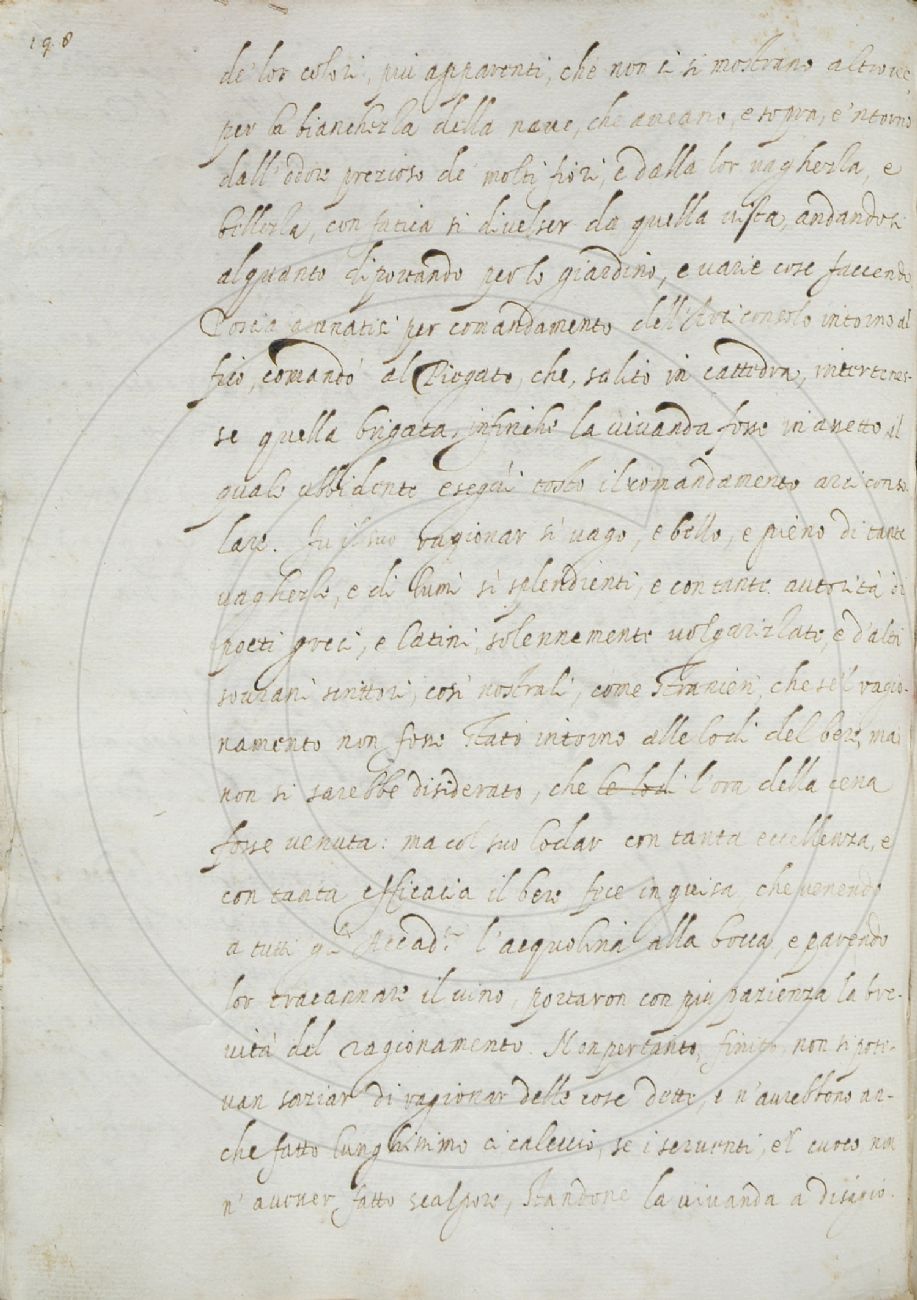 198
de' lor colori, più apparenti, che non ti si mostrano altrove,
per la bianchezza della neve, che aveano, e sopra, e 'ntorno
dall' odore prezioso de' molti fiori, e dalla lor vaghezza, e
bellezza, con fatica si divelser da quella vista, andandosi
alquanto diportando per lo giardino, e varie cose faccendo
Poscia raunatisi per comandamento dell' Arciconsolo intorno al
fico, comandò al Riegato, che, salito in cattedra, intertenes-
se quella brigata, infinchè la vivanda fosse in assetto il
quale ubbidente eseguì tosto il comandamento arciconso-
lare. Fu il suo ragionar sì vago, e bello, e pieno di tante
vaghezze, e di lumi sì splendienti, e con tante autorità di
poeti greci, e latini, solennemente volgarizzate, e d'altri
sovrani scrittori, così nostrali, come stranieri, che se 'l ragio-
namento non fosse stato intorno alle lodi del bere, mai
non si sarebbe disiderato, che le lodi l'ora della cena
fosse venuta: ma col suo lodar con tanta eccellenza, e
con tanta efficacia il bere fece in guisa, che venendo
a tutti gli Accad.ci l'acquolina alla bocca, e parendo
lor tracannare il vino, portaron con più pazienza la bre-
vità del ragionamento. Nonpertanto, finito, non si pote-
van saziar di ragionar delle cose dette, e n'avrebbono an-
che fatto lunghissimo cicaleccio, se i serventi, e 'l cuoco non
n' avesser fatto scalpore, standone la vivanda a disagio.